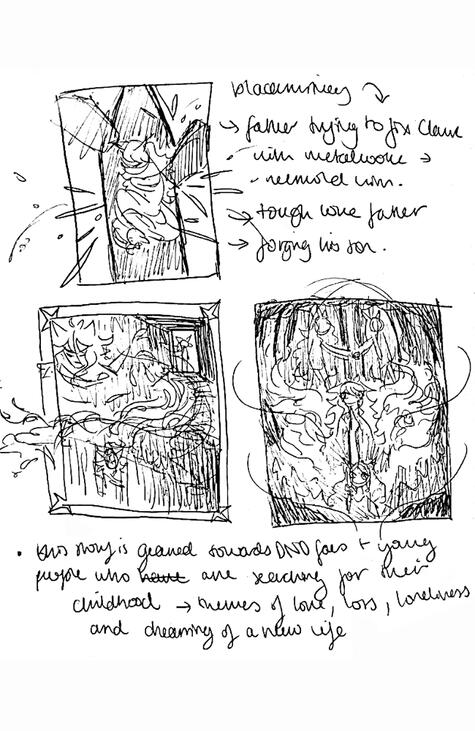 → father trying to fix Claude
with metalwork →
remould him.
→ tough love father
→ forging his son.
• this story is geared towards DND fans + young
people who have are searching for their
childhood → themes of love, loss, loneliness
and dreaming of a new life